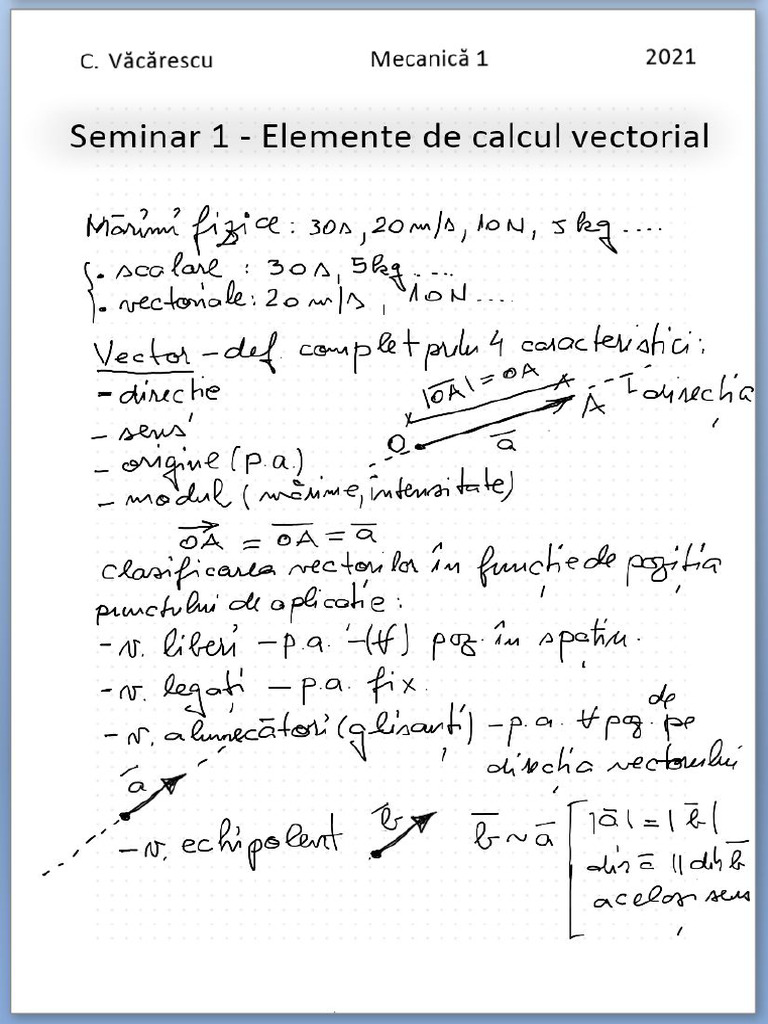 C. Văcărescu Mecanică 1 2021
Seminar 1 - Elemente de calcul vectorial
Mărimi fizice: 30s, 20 m/s, 10N, 5 kg ....
• scalare : 30s, 5kg ....
• vectoriale: 20 m/s, 10N ....
Vector - def. complet prin 4 caracteristici:
- direcție
|OA| = OA
direcția
- sens
O A
a
- origine (p.a.)
- modul (mărime, intensitate)
OA = OA = a
clasificarea vectorilor în funcție de poziția
punctului de aplicație:
- v. liberi - p.a. - (∀) poz. în spațiu.
- v. legați - p.a. fix.
- v. alunecători (glisanți) - p.a. ∀ poz. de pe
direcția vectorului
a
- v. echipolent
b
b ~ a
|a| = |b|
dir a || dir b
același sens